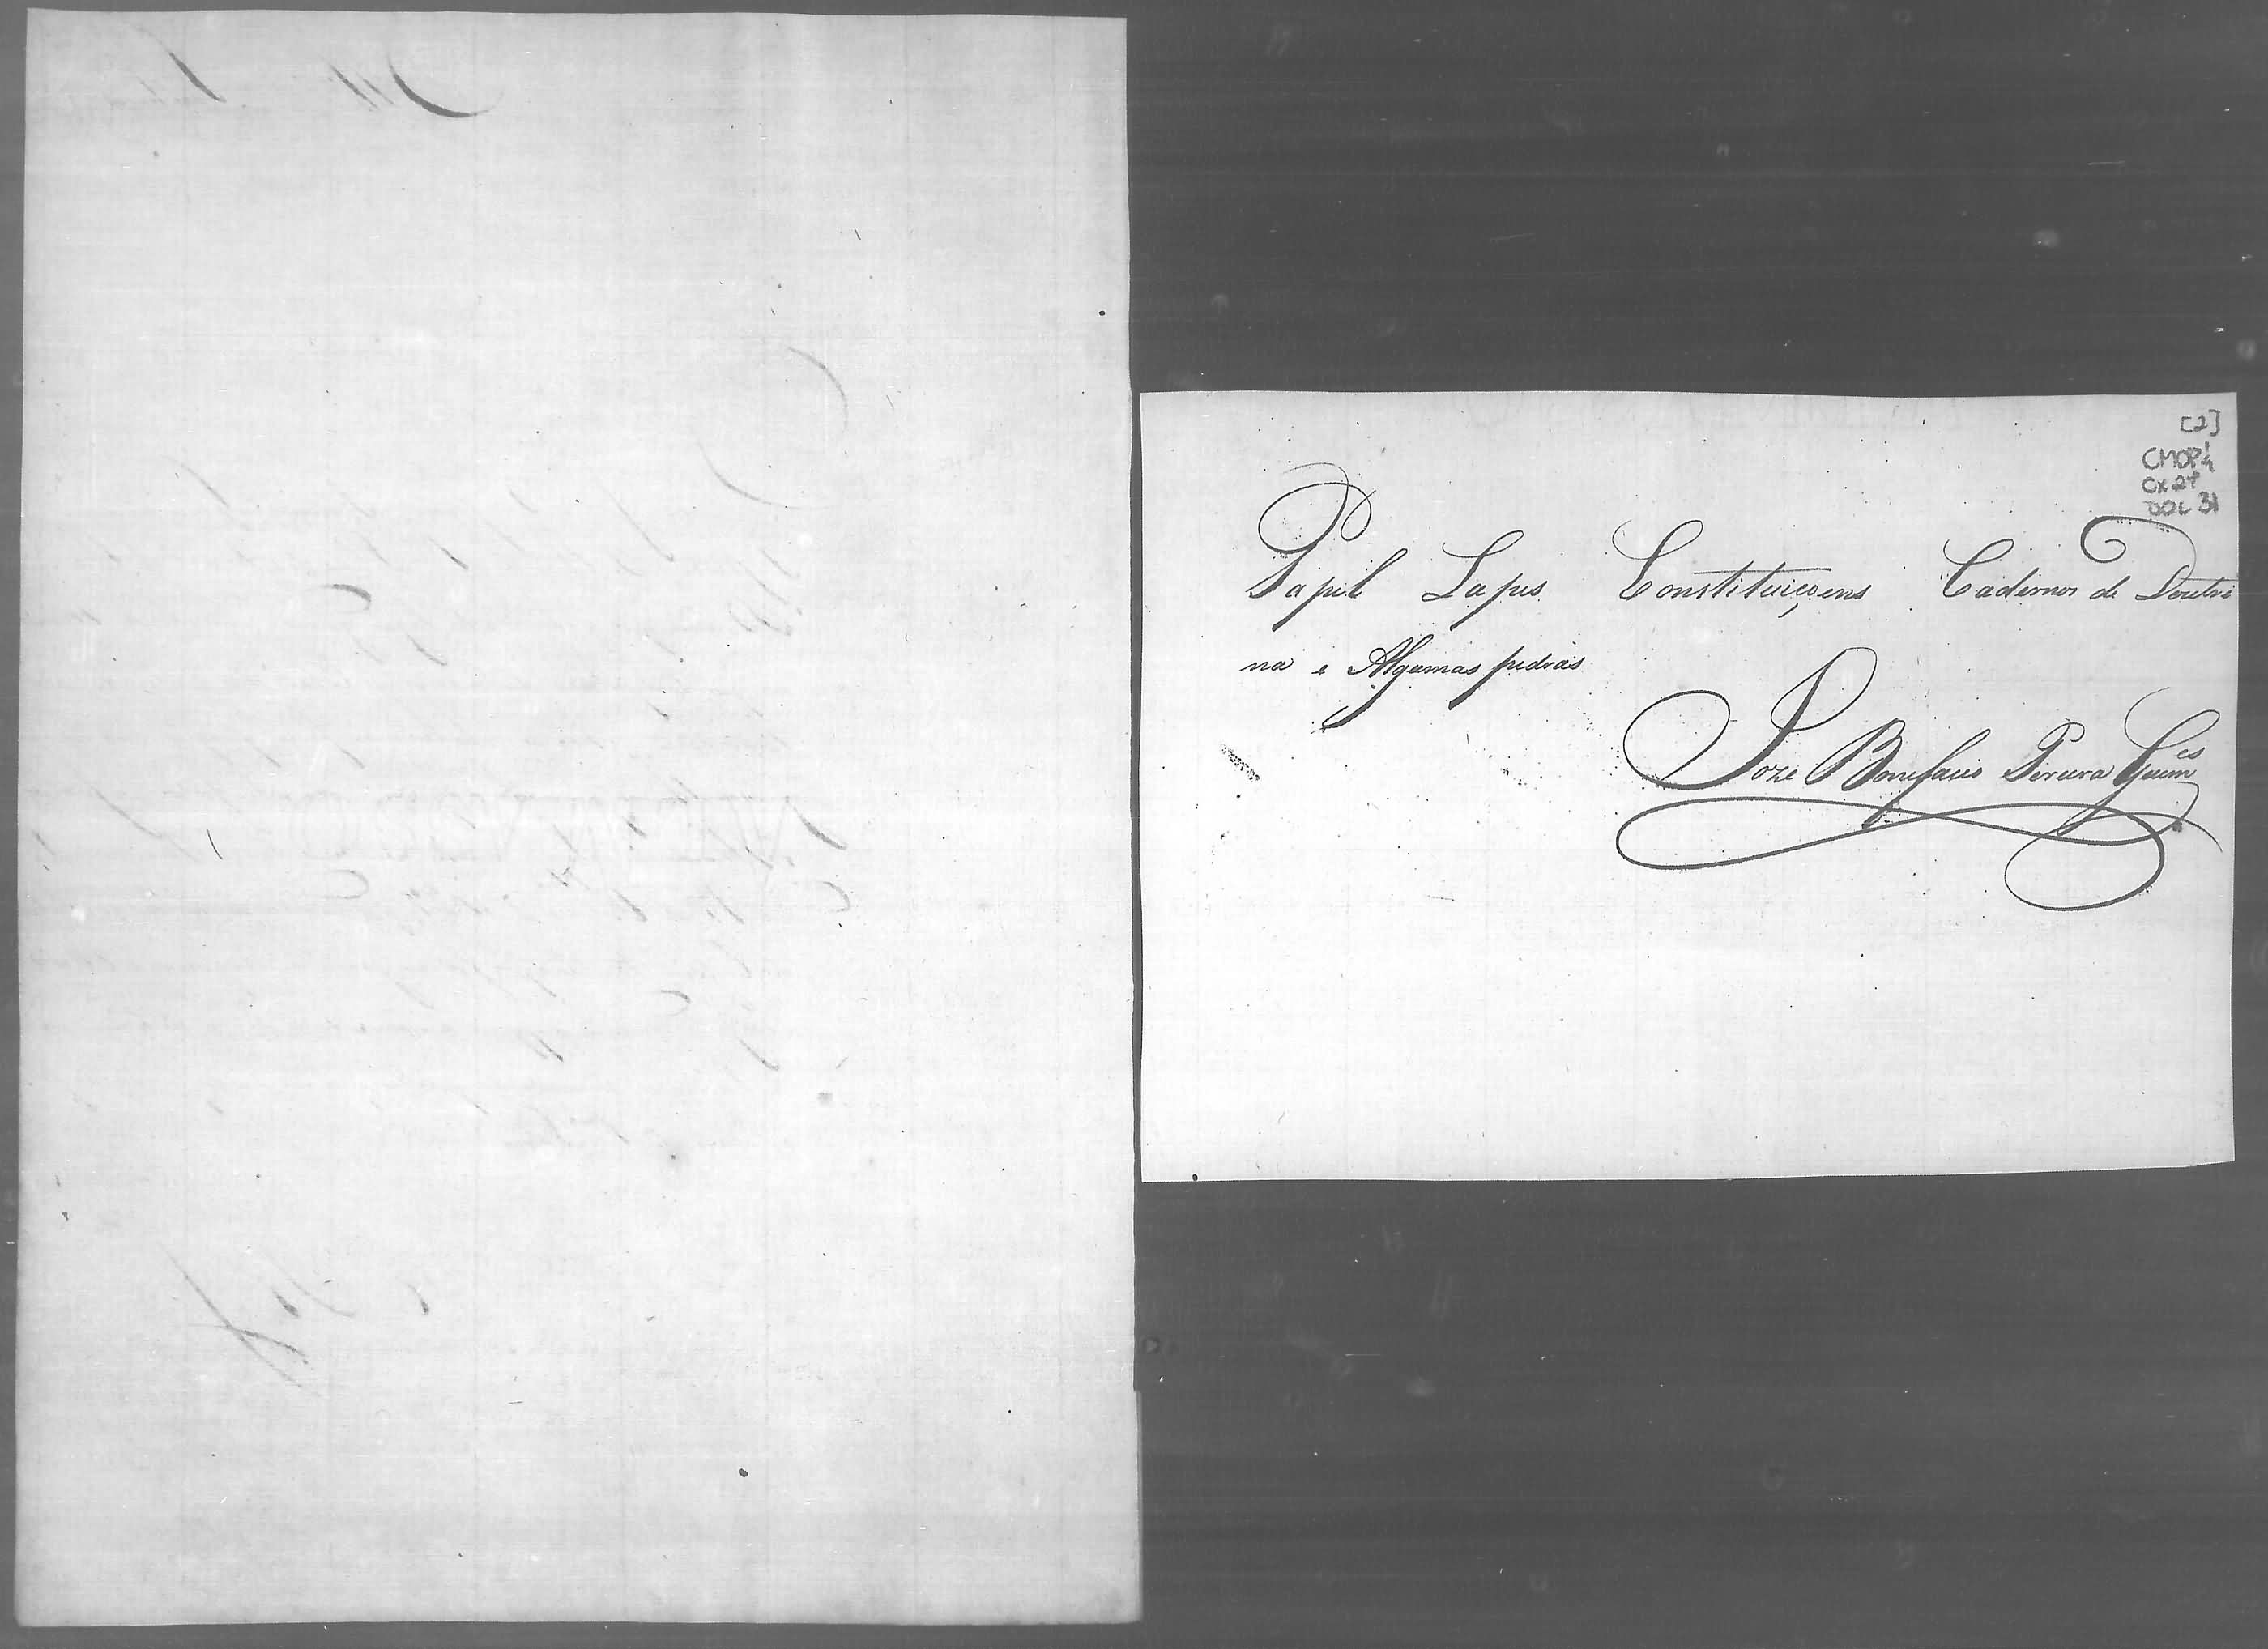 [2]
CMOP
DOC 31
Papel Lapes Constituiçoens Cadernos de Doutri
na e Algumas pedras
Joze Bonifacio Pereira Guim^es